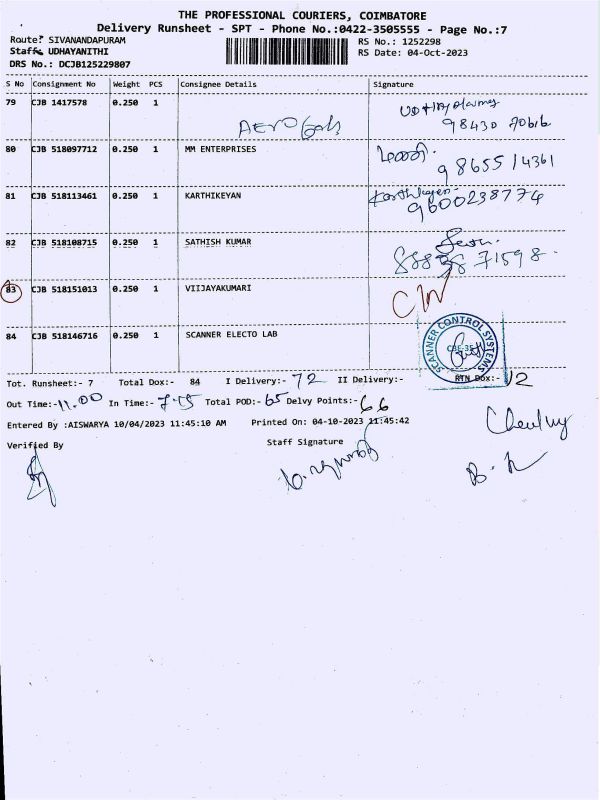 THE PROFESSIONAL COURIERS, COIMBATORE
Delivery Runsheet - SPT - Phone No.:0422-3505555 - Page No.:7
Route: SIVANANDAPURAM RS No.: 1252298
Staff: UDHAYANITHI RS Date: 04-Oct-2023
DRS No.: DCJB125229807
S No Consignment No Weight PCS Consignee Details Signature
79 CJB 1417578 0.250 1
98430 70616
80 CJB 518097712 0.250 1 MM ENTERPRISES
98655 14361
81 CJB 518113461 0.250 1 KARTHIKEYAN
9600238774
82 CJB 518108715 0.250 1 SATHISH KUMAR
71598
83 CJB 518151013 0.250 1 VIIJAYAKUMARI
84 CJB 518146716 0.250 1 SCANNER ELECTO LAB
SCANNER CONTROL SYSTEMS
CBE-35
Tot. Runsheet:- 7 Total Dox:- 84 I Delivery:- 72 II Delivery:- RTN Dox:- 12
Out Time:- 11.00 In Time:- 7.15 Total POD:- 65 Delvy Points:- 66
Entered By :AISWARYA 10/04/2023 11:45:10 AM Printed On: 04-10-2023 11:45:42
Verified By Staff Signature